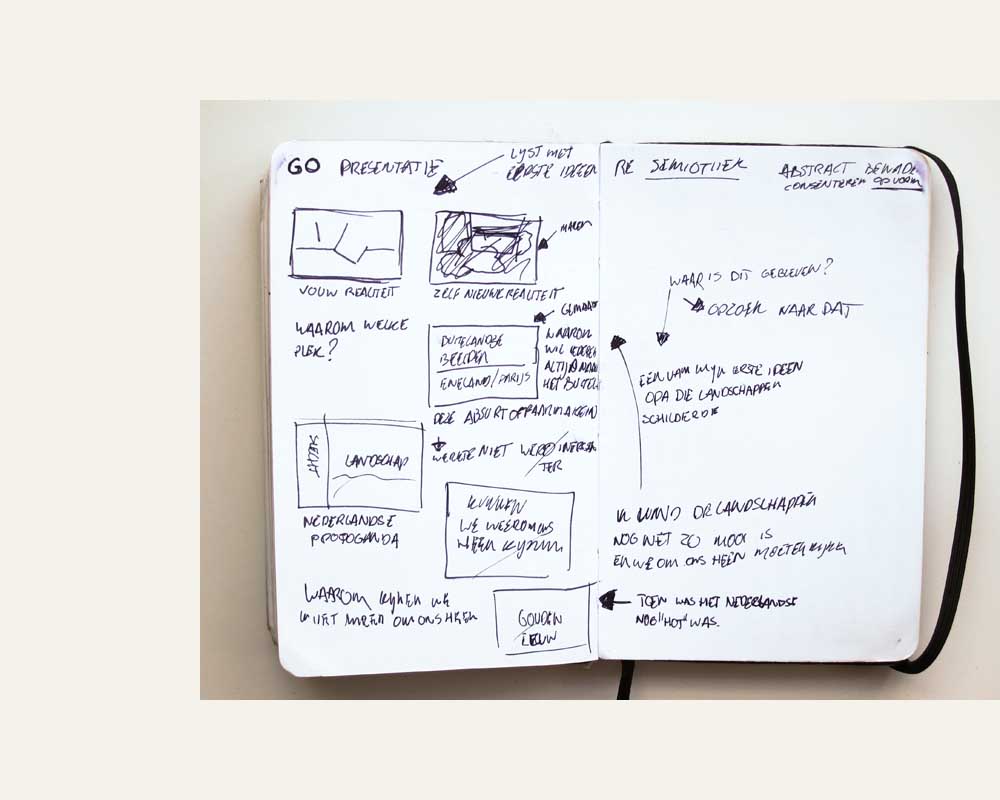 GO PRESENTATIE
LYST MET
EERSTE IDEEEN
MALEN
VOUW REALITEIT
ZELF NIEUWE REALITEIT
WAAROM WELKE
PLEK?
BUITELANDSE
BEELDEN
ENGELAND/PARIJS
WAAROM
WIL IEDEREEN
ALTIJD NAAR
HET BUITEN
DEZE ABSURT
SLECHT
LANDSCHAP
WERKTE NIET
TER
NEDERLANDSE
PROPOGANDA
KUNNEN
WE WEER OM ONS
HEEN KIJKEN
WAAROM KIJKEN WE
NIET MEER OM ONS HEEN
GOUDEN
EEUW
RE SEMIOTIEK
ABSTRACT
OP VORM
WAAR IS DIT GEBLEVEN?
OPZOEK NAAR DAT
EEN VAN MIJN EERSTE IDEEN
OPA DIE LANDSCHAPPEN
SCHILDERDE
IK VIND DE LANDSCHAPPEN
NOG NET ZO MOOI IS
EN WE OM ONS HEEN MOETEN KIJKEN
TOEN WAS HET NEDERLANDSE
NOG "HOT" WAS.